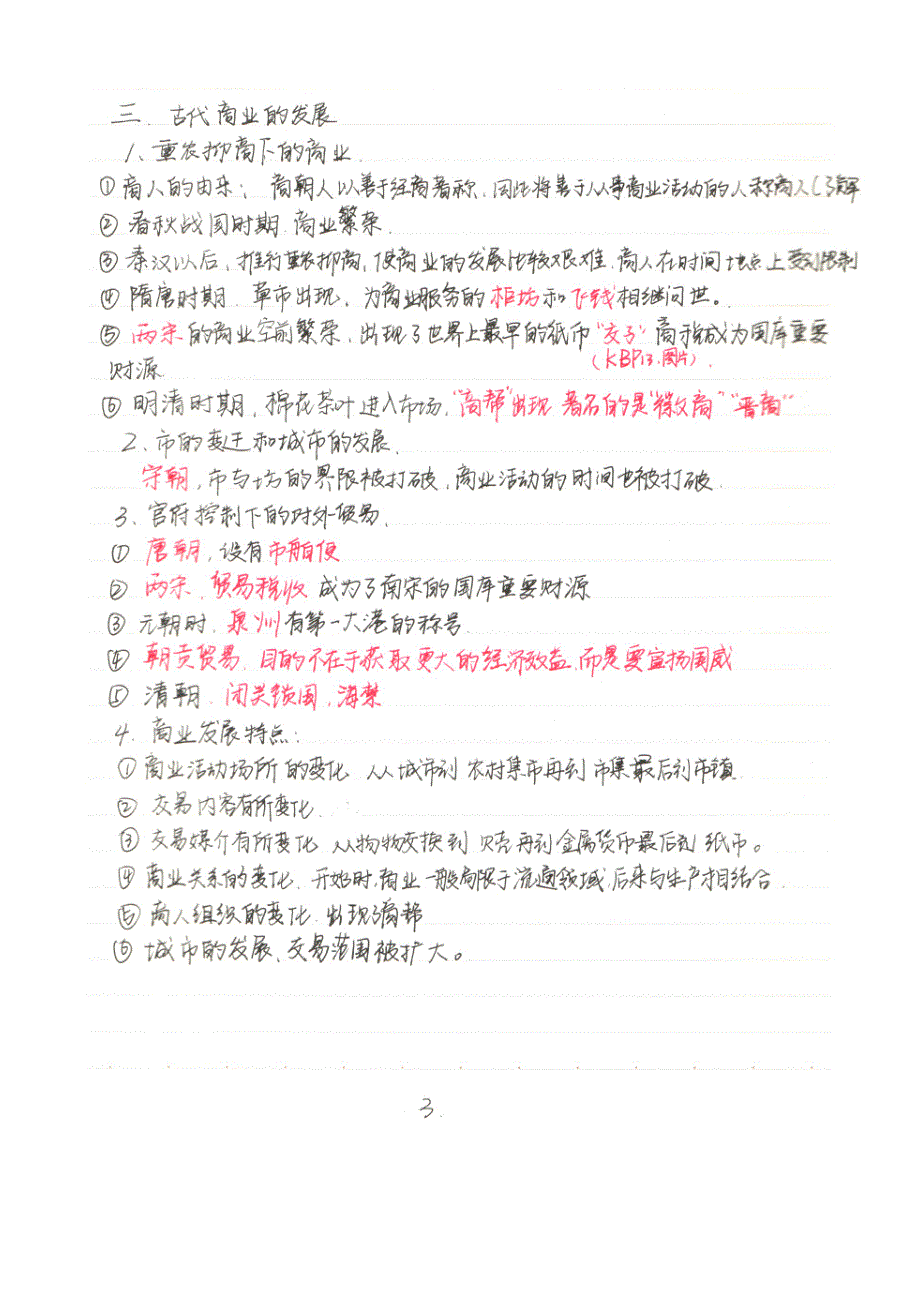 三、古代商业的发展
1、重农抑商下的商业.
① 商人的由来：商朝人以善于经商著称,因此将善于从事商业活动的人称商人(了解
② 春秋战国时期.商业繁荣.
③ 秦汉以后，推行重农抑商，使商业的发展比较艰难.商人在时间地点上受到限制
④ 隋唐时期.草市出现，为商业服务的柜坊和飞钱相继问世。
⑤ 两宋的商业空前繁荣，出现了世界上最早的纸币“交子”商税成为国库重要
(KBP13.图片).
财源
⑥ 明清时期，棉花茶叶进入市场，“商帮”出现 著名的是“徽商”“晋商”
2、市的变迁和城市的发展.
宋朝，市与坊的界限被打破，商业活动的时间也被打破.
3、官府控制下的对外贸易.
① 唐朝，设有市舶使
② 两宋，贸易税收成为了南宋的国库重要财源
③ 元朝时，泉州有第一大港的称号.
④ 朝贡贸易.目的不在于获取更大的经济效益,而是要宣扬国威
⑤ 清朝.闭关锁国，海禁
4、商业发展特点：
① 商业活动场所的变化.从城市到农村集市再到市集最后到市镇.
② 交易内容有所变化.
③ 交易媒介有所变化.从物物交换到贝壳再到金属货币最后到纸币。
④ 商业关系的变化.开始时,商业一般局限于流通领域,后来与生产相结合.
⑤ 商人组织的变化.出现了商帮
⑥ 城市的发展、交易范围被扩大。
3.